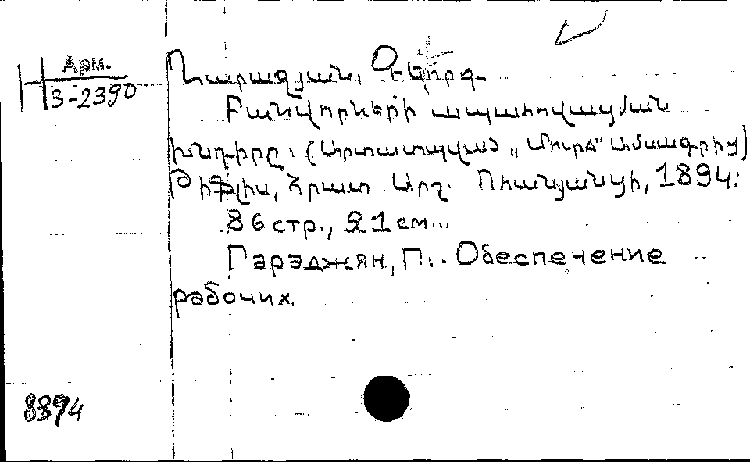 Арм.
З-2390
Ղարաջյան, Գևորգ.
Բանվորների ապահովության
խնդիրը. (Արտատպված „Մուրճ“ ամսագրից)
Թիֆլիս, հրատ
1894:
86 стр., 21 см.
Гараджян, П.. Обеспечение
рабочих.
8894